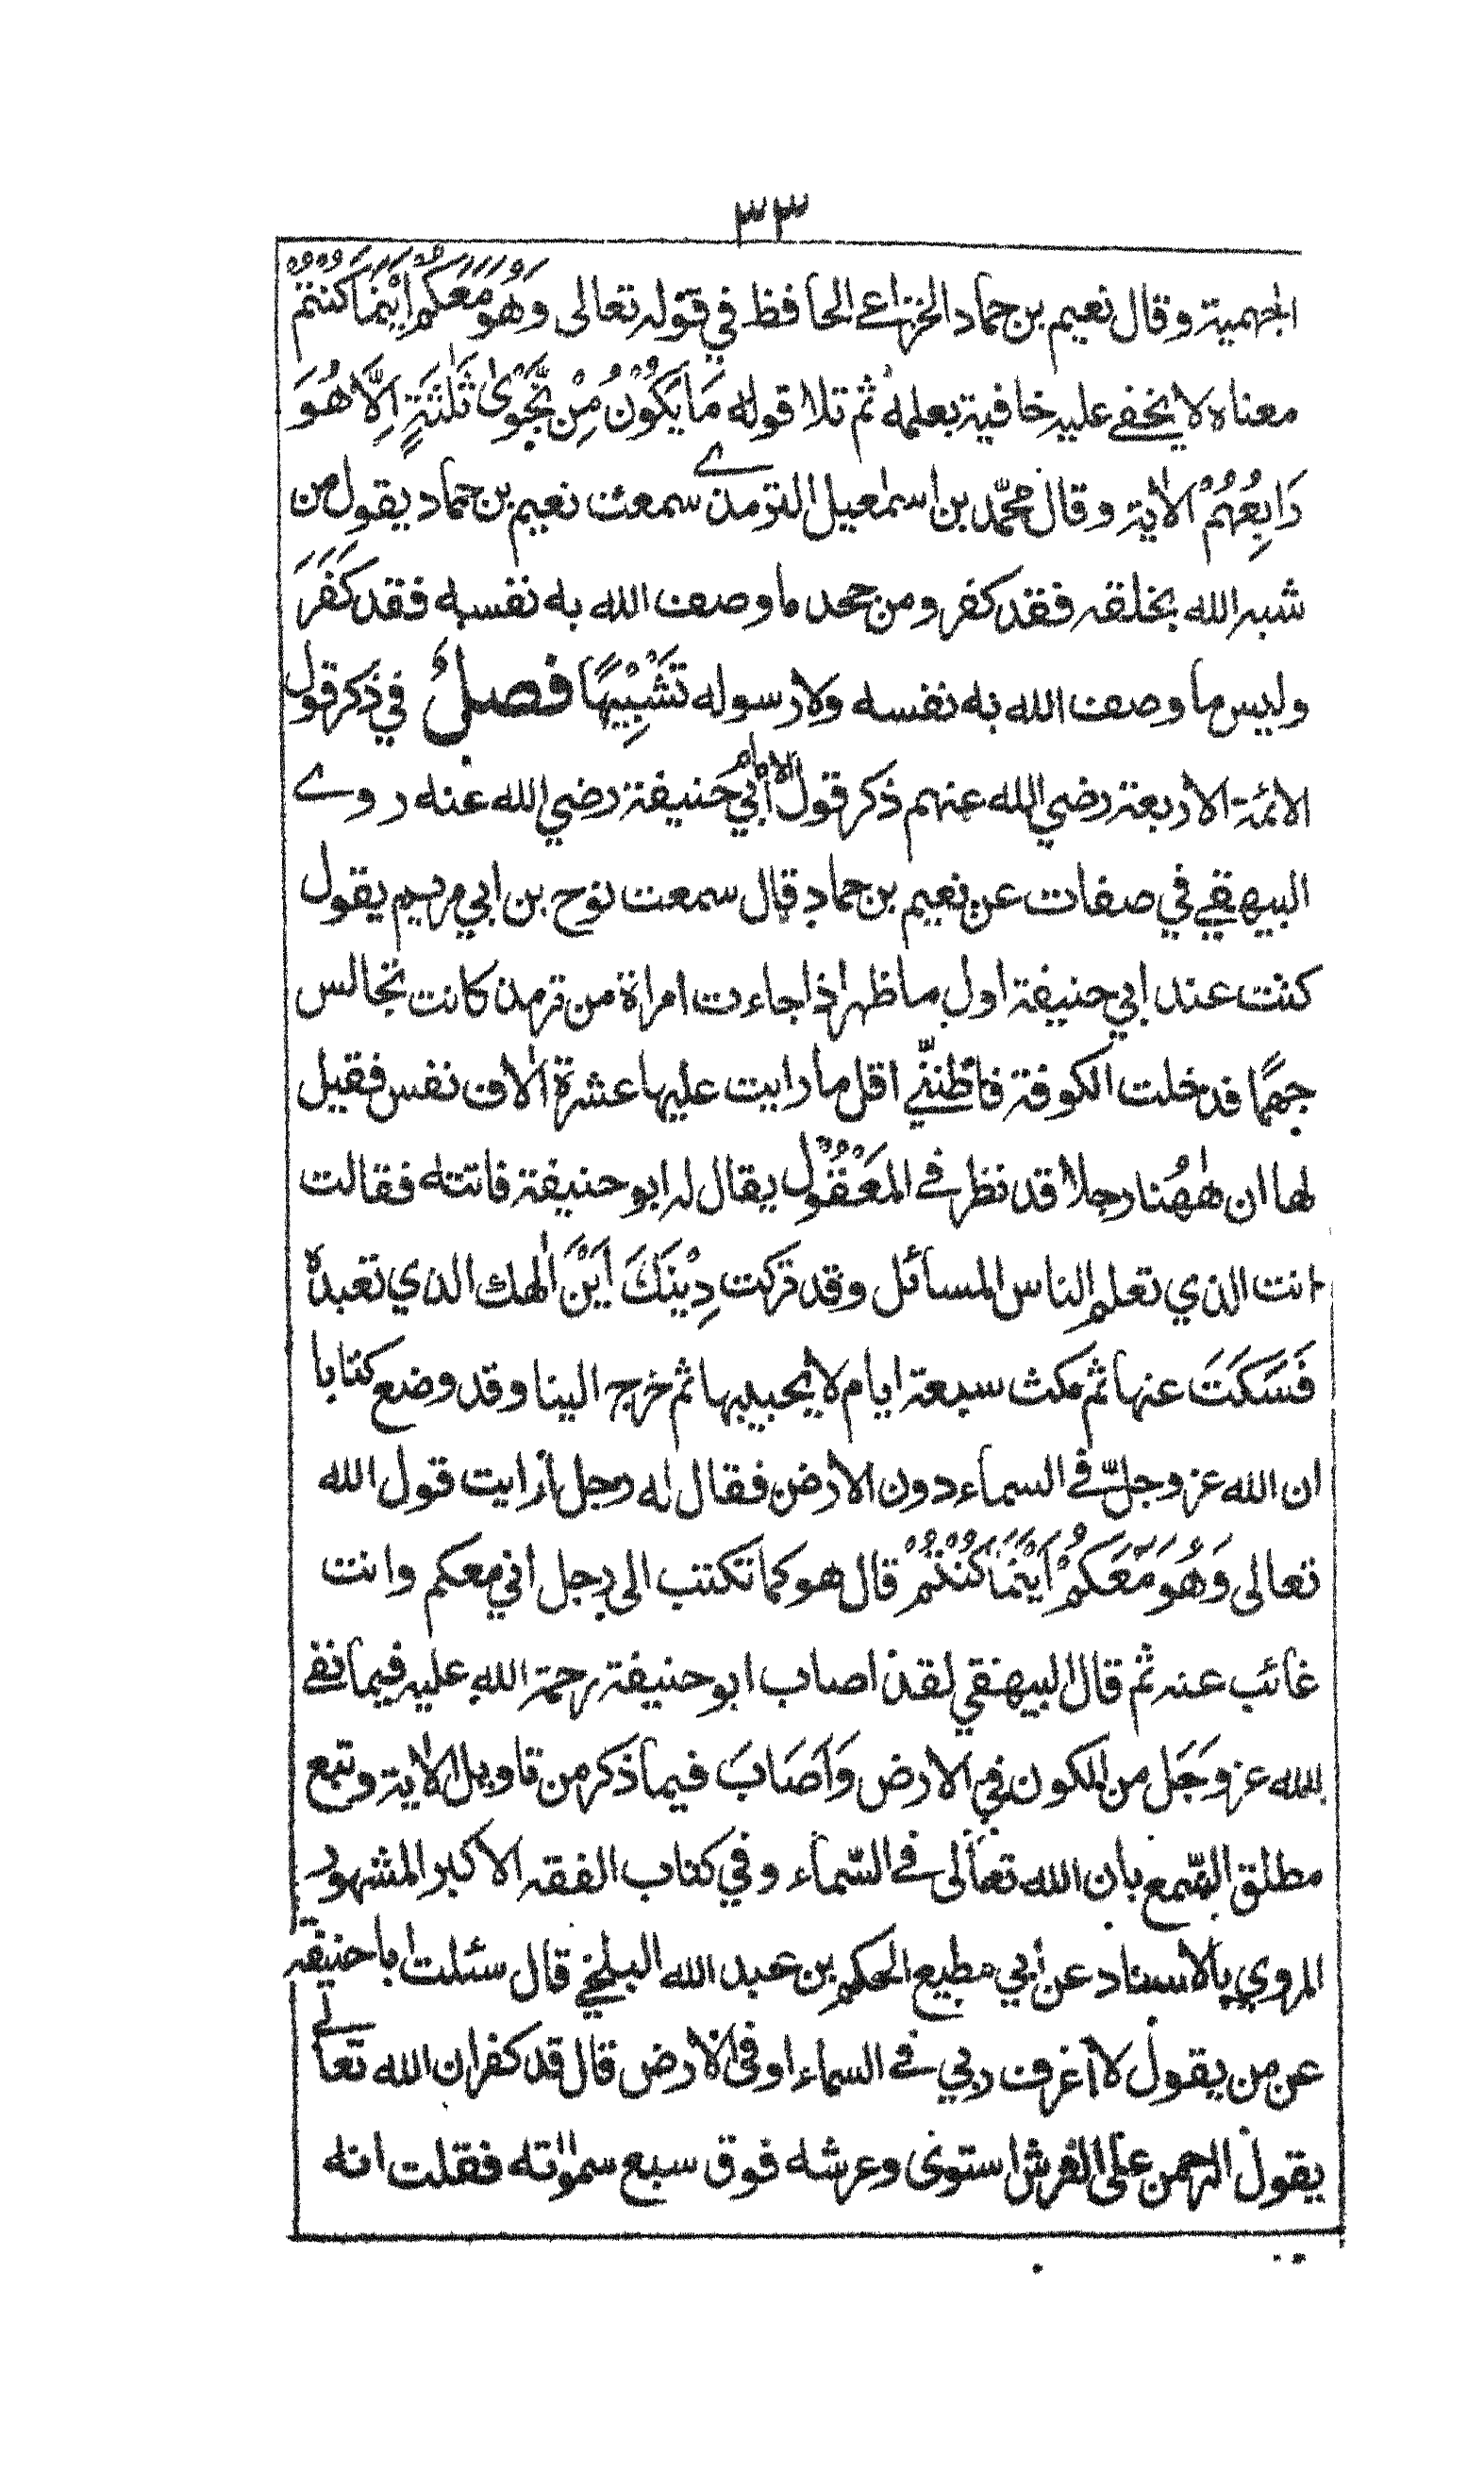 ٣٣
الجهمية وقال نعيم بن حماد الخزاعي الحافظ في قوله تعالى وَهُوَ مَعَكُمْ اَيْنَمَا كُنْتُمْ
معناه لا يخفى عليه خافية بعلمه ثم تلا قوله مَا يَكُوْنُ مِنْ نَّجْوٰى ثَلٰثَةٍ اِلَّا هُوَ
رَابِعُهُمْ الاٰية وقال محمّد بن اسمٰعيل الترمذي سمعت نعيم بن حماد يقول من
شبه الله بخلقه فقد كفر ومن جحد ما وصف الله به نفسه فقد كَفَرَ
وليس ما وصف الله به نفسه ولا رسوله تَشْبِيْهًا فصلٌ في ذكر قول
الائمة الاربعة رضي الله عنهم ذكر قول الامام أبي حنيفة رضي الله عنه روى
البيهقي في صفات عن نعيم بن حماد قال سمعت نوح بن ابي مريم يقول
كنت عند ابي حنيفة اول ما ظهر اذا جاءت امراة من ترمذ كانت تجالس
جهمًا فدخلت الكوفة فاظننّي اقل ما رايت عليها عشرة اٰلاف نفس فقيل
لها ان هٰهُنا رجلا قد نظر في المَعْقُوْل يقال له ابو حنيفة فاتته فقالت
انت الذي تعلم الناس المسائل وقد تركت دِيْنَكَ اَيْنَ اٰلهك الذي تعبده
فَسَكَتَ عنها ثم مكث سبعة ايام لا يجيبها ثم خرج الينا وقد وضع كتابا
ان الله عز وجلّ في السماء دون الارض فقال له رجل ارايت قول الله
تعالى وَهُوَ مَعَكُمْ اَيْنَمَا كُنْتُمْ قال هو كما تكتب الى رجل اني معكم وانت
غائب عنه ثم قال البيهقي لقد اصاب ابو حنيفة رحمة الله عليه فيما نفى
لله عز وَجَل من الكون في الارض وَاَصَابَ فيما ذكر من تاويل الاٰية وتبع
مطلق السّمع بان الله تعالى في السّماء وفي كتاب الفقه الاكبر المشهور
المروي بالاسناد عن أبي مطيع الحكم بن عبد الله البلخي قال سئلت ابا حنيفة
عن من يقول لا اعرف ربي في السماء او في الارض قال قد كفر ان الله تعالى
يقول الرحمن على العرش استوى وعرشه فوق سبع سمٰواته فقلت انه